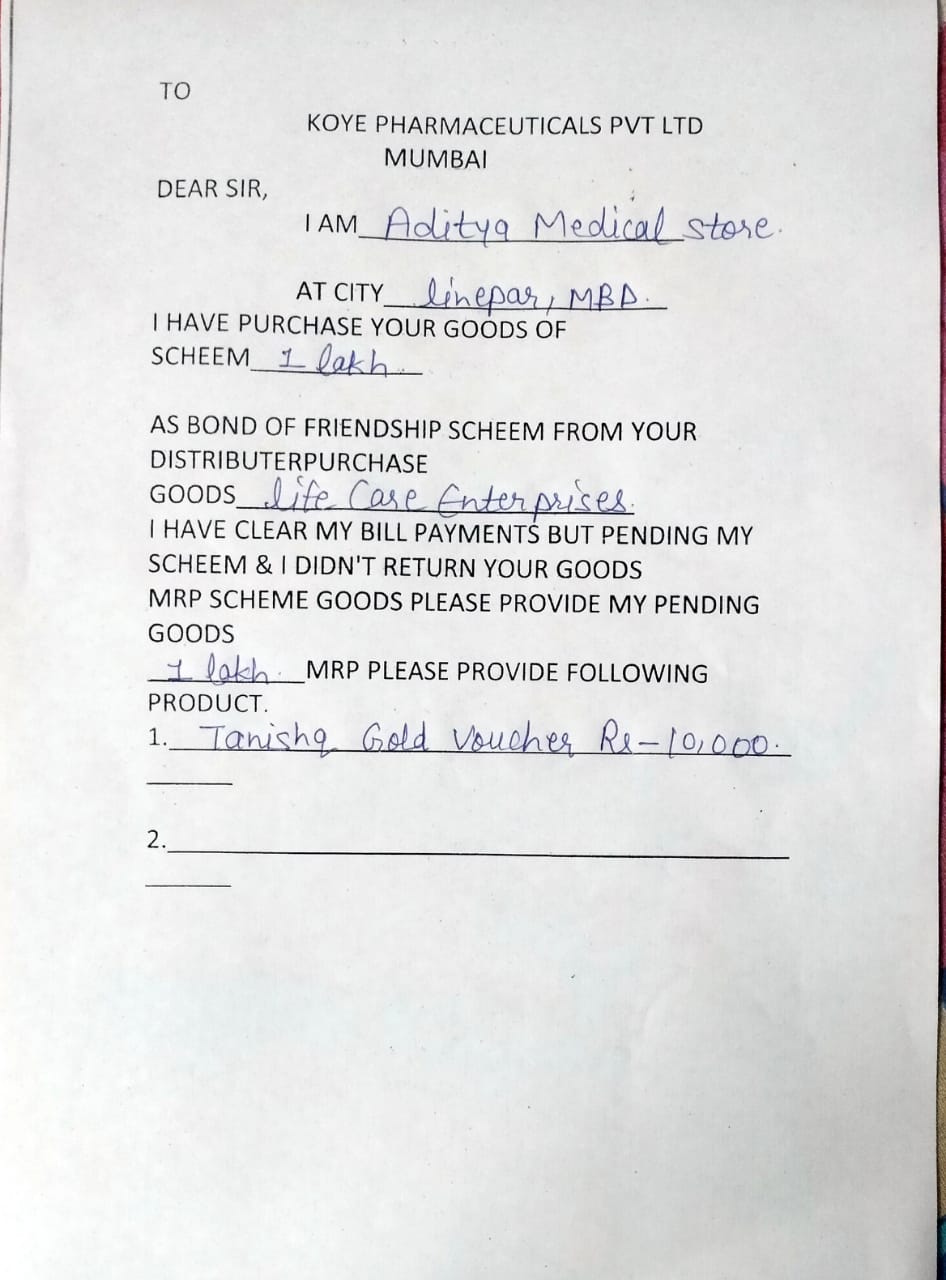 TO
KOYE PHARMACEUTICALS PVT LTD
MUMBAI
DEAR SIR,
I AM Aditya Medical store.
AT CITY linepar, MBD.
I HAVE PURCHASE YOUR GOODS OF
SCHEEM 1 lakh
AS BOND OF FRIENDSHIP SCHEEM FROM YOUR
DISTRIBUTERPURCHASE
GOODS life Care Enterprises.
I HAVE CLEAR MY BILL PAYMENTS BUT PENDING MY
SCHEEM & I DIDN'T RETURN YOUR GOODS
MRP SCHEME GOODS PLEASE PROVIDE MY PENDING
GOODS
1 lakh. MRP PLEASE PROVIDE FOLLOWING
PRODUCT.
1. Tanishq Gold Voucher Rs-10,000.
2.